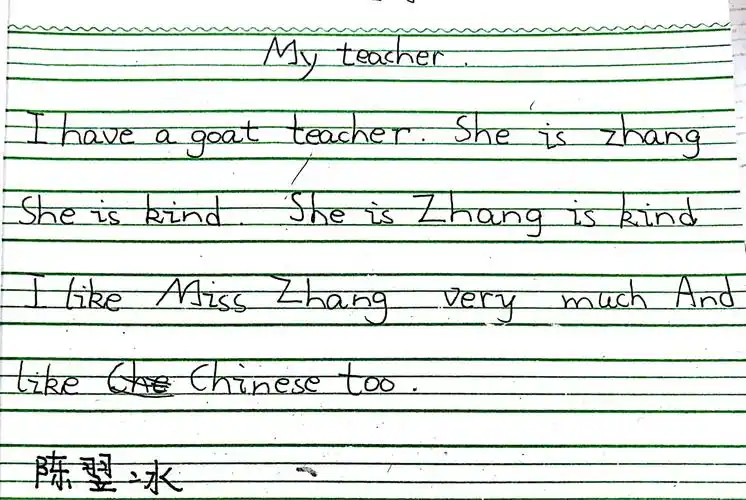 My teacher.
I have a goat teacher. She is zhang
She is kind. She is Zhang is kind
I like Miss Zhang very much And
like Chinese too.
陈翌冰